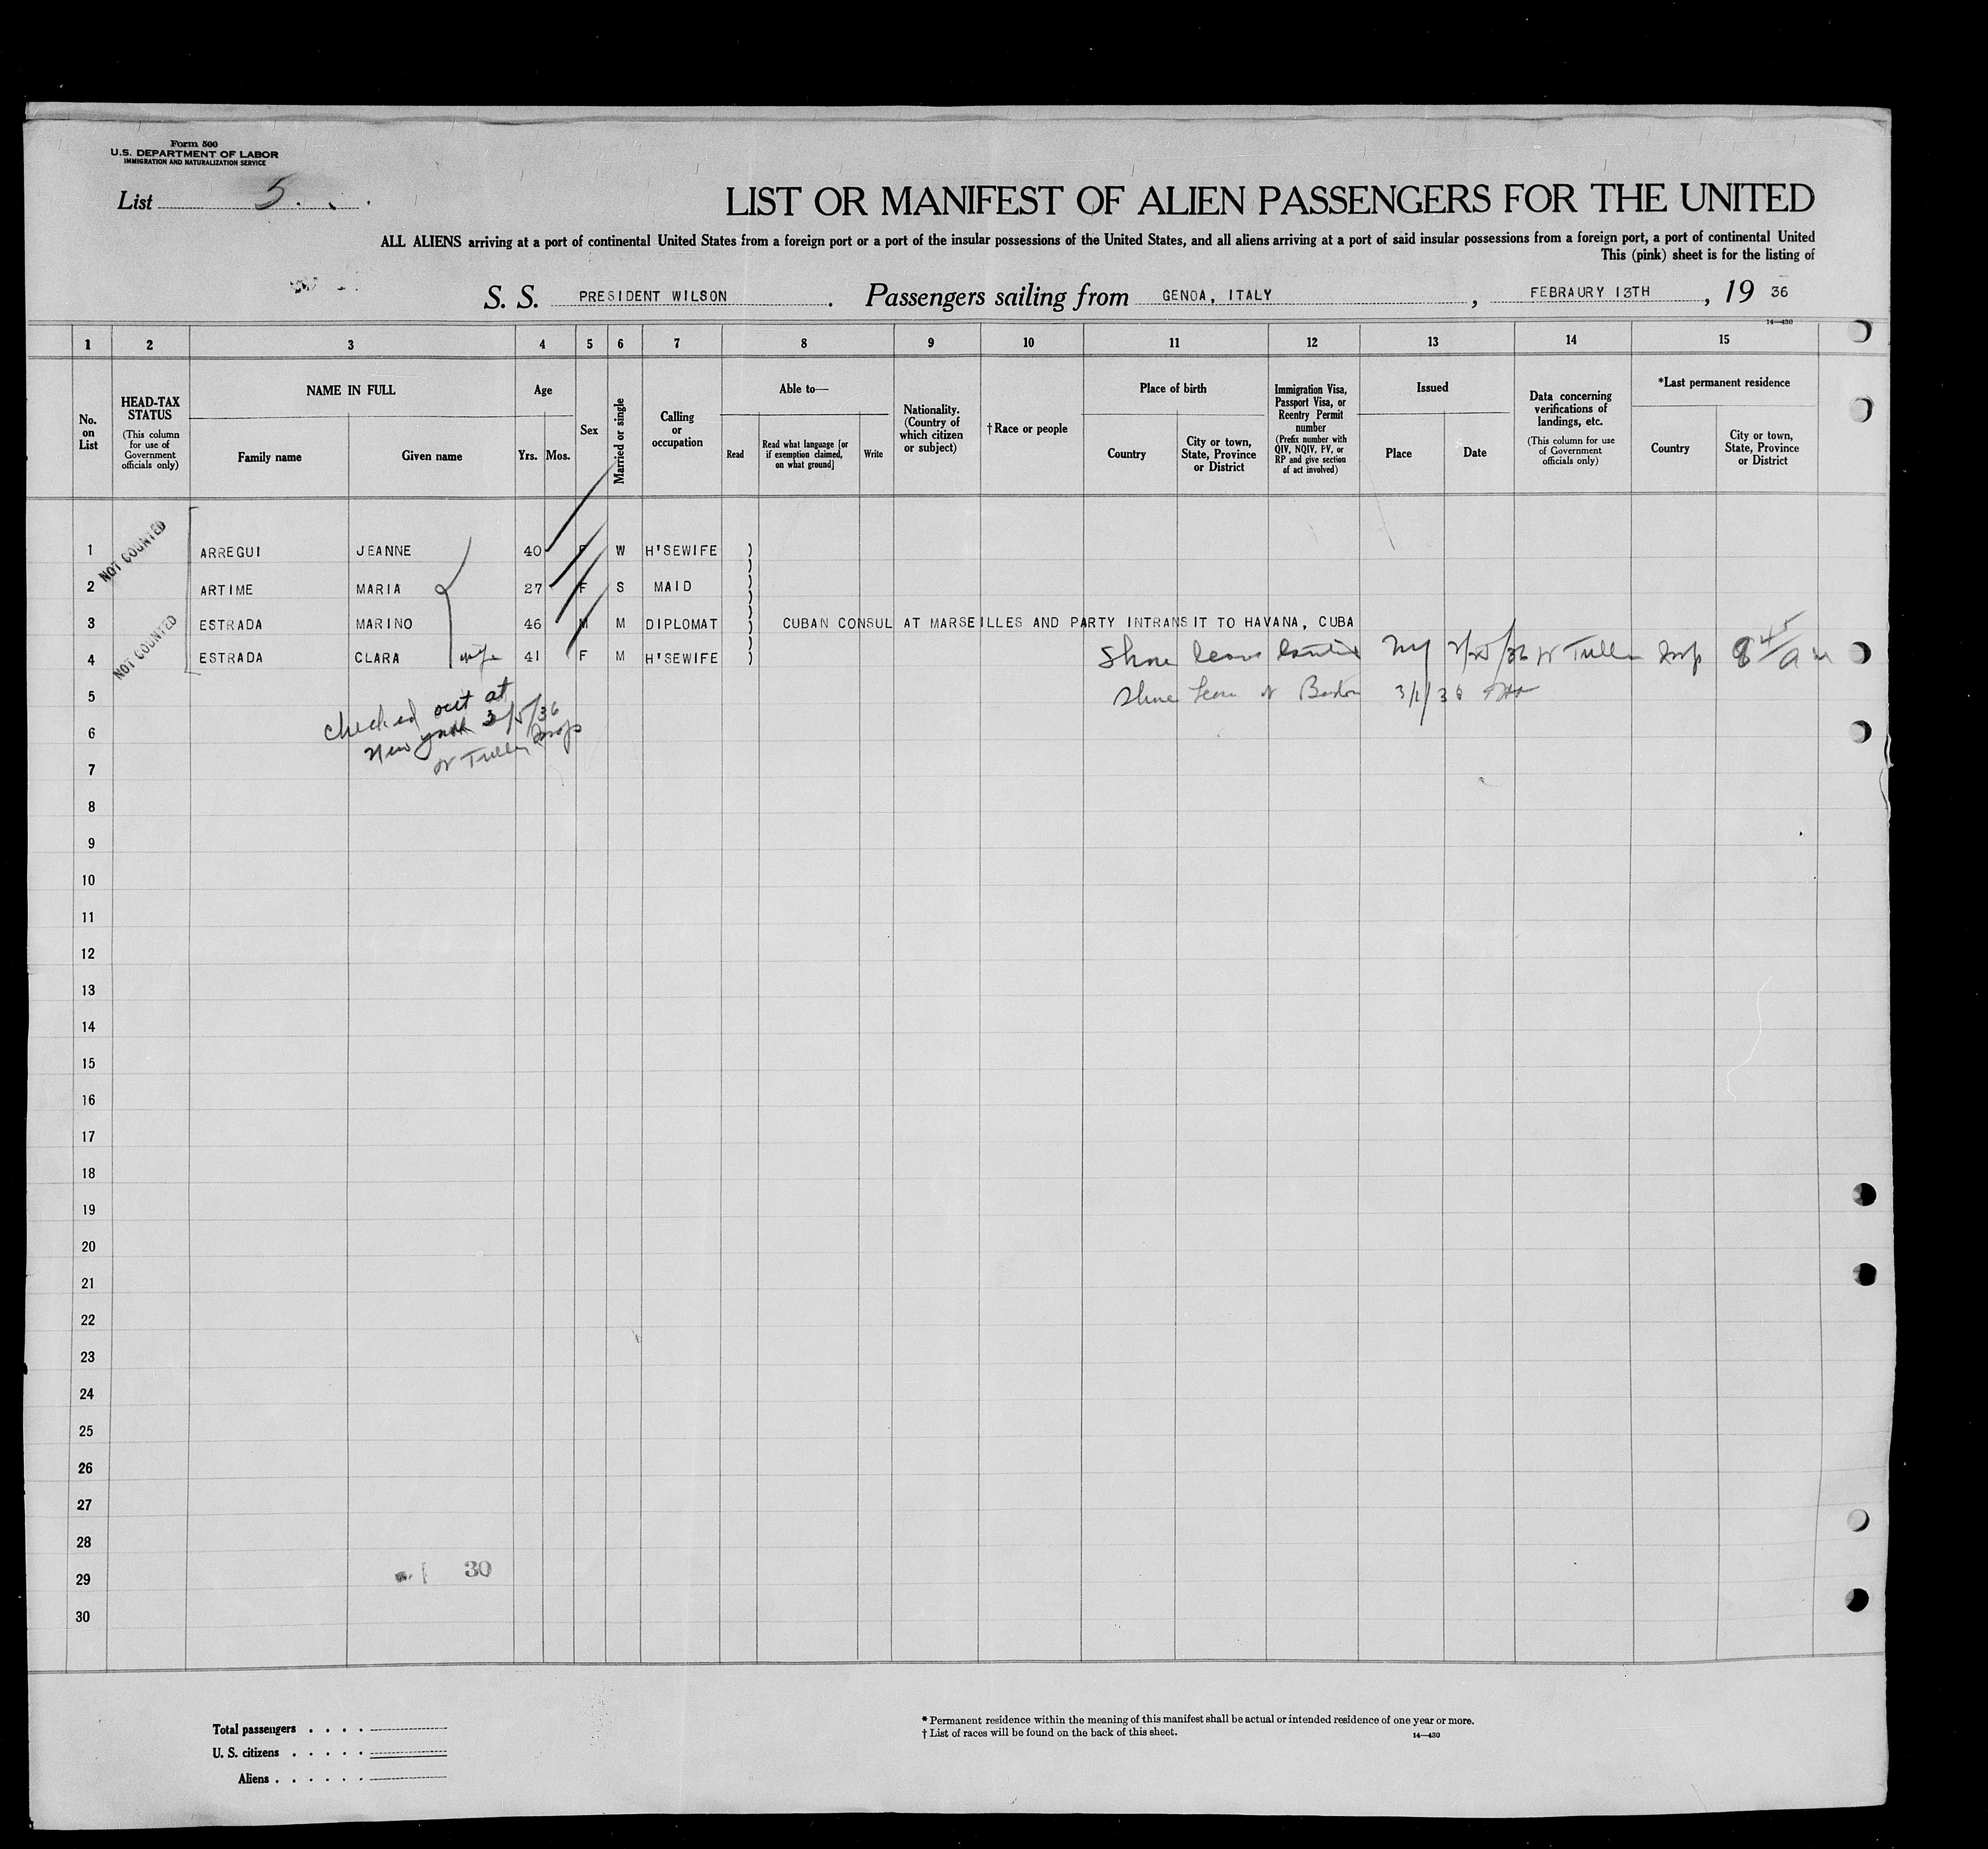 Form 500
U.S. DEPARTMENT OF LABOR
IMMIGRATION AND NATURALIZATION SERVICE
List 5.
LIST OR MANIFEST OF ALIEN PASSENGERS FOR THE UNITED
ALL ALIENS arriving at a port of continental United States from a foreign port or a port of the insular possessions of the United States, and all aliens arriving at a port of said insular possessions from a foreign port, a port of continental United
This (pink) sheet is for the listing of
S. S. PRESIDENT WILSON. Passengers sailing from GENOA, ITALY, FEBRAURY 13TH, 19 36
14—430
1 2 3 4 5 6 7 8 9 10 11 12 13 14 15
No. on List
HEAD-TAX STATUS
(This column for use of Government officials only)
NAME IN FULL
Family name
Given name
Age
Yrs.
Mos.
Sex
Married or single
Calling or occupation
Able to—
Read
Read what language [or if exemption claimed, on what ground]
Write
Nationality. (Country of which citizen or subject)
† Race or people
Place of birth
Country
City or town, State, Province or District
Immigration Visa, Passport Visa, or Reentry Permit number
(Prefix number with QIV, NQIV, PV, or RP and give section of act involved)
Issued
Place
Date
Data concerning verifications of landings, etc.
(This column for use of Government officials only)
*Last permanent residence
Country
City or town, State, Province or District
NOT COUNTED
1 ARREGUI JEANNE 40 F W H'SEWIFE )
2 ARTIME MARIA 27 F S MAID )
NOT COUNTED
3 ESTRADA MARINO 46 M M DIPLOMAT ) CUBAN CONSUL AT MARSEILLES AND PARTY INTRANSIT TO HAVANA, CUBA
4 ESTRADA CLARA wife 41 F M H'SEWIFE )
Shore leave NY /36 W Tullen Insp 8 45 am
5 Shore leave Boston 3/1/36
checked out at
6 New York 3/5/36
W Tullen Insp
7
8
9
10
11
12
13
14
15
16
17
18
19
20
21
22
23
24
25
26
27
28
29
30
30
Total passengers . . . .
U. S. citizens . . . . .
Aliens . . . . . .
* Permanent residence within the meaning of this manifest shall be actual or intended residence of one year or more.
† List of races will be found on the back of this sheet.
14—430